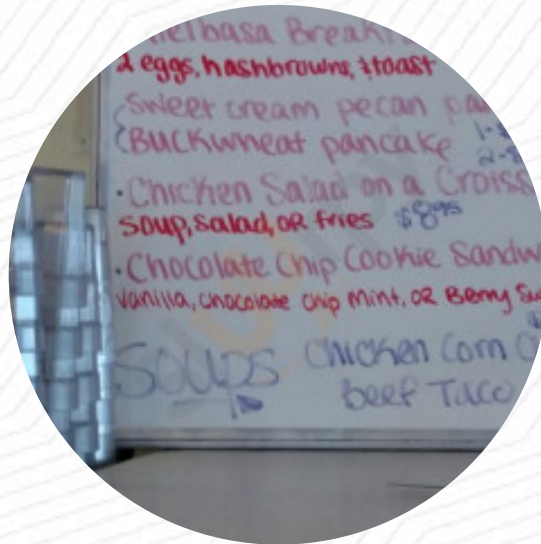 2 eggs, hashbrowns, & toast
Sweet cream pecan
BUCKWheat pancake 1-
2-
• Chicken Salad on a
Soup, Salad, OR fries $8.95
• Chocolate Chip Cookie
Vanilla, chocolate chip Mint, OR Berry
SOUPS Chicken Corn
Beef Taco